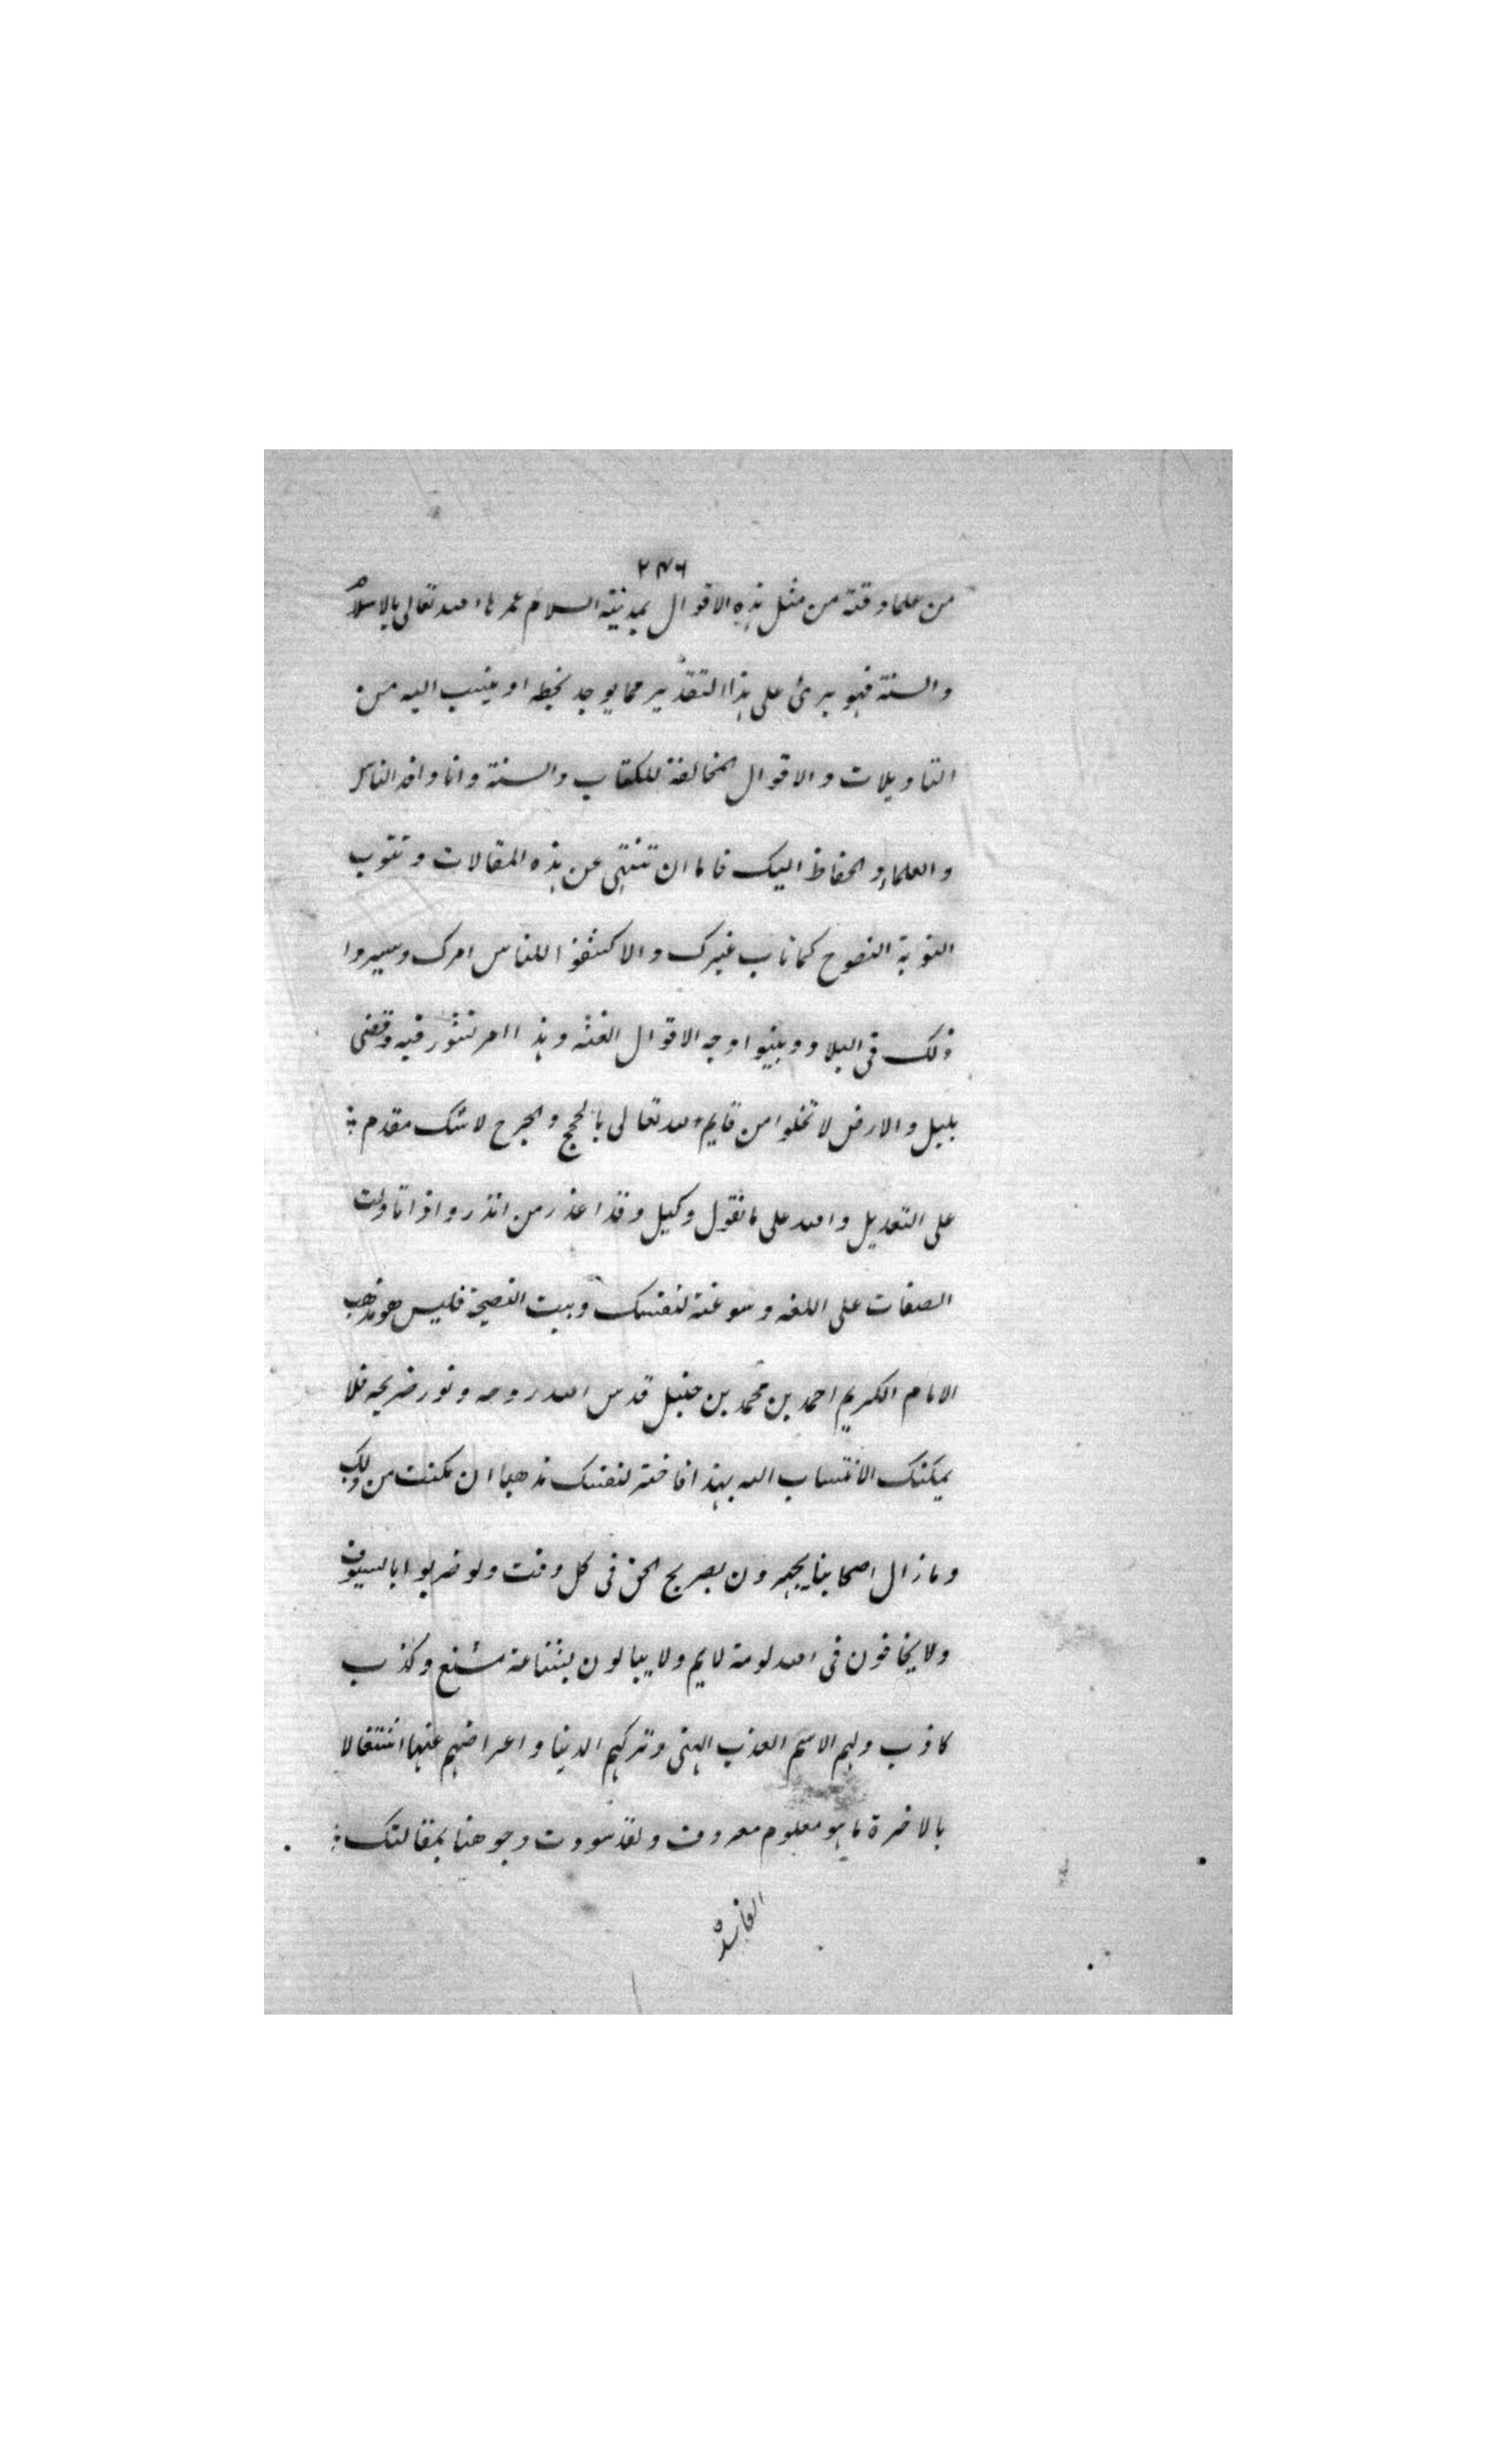 ٢٣٦
من علماء وقته من مثل هذه الاقوال بمدينة السلام عمرها الله تعالى بالاسلام
والسنة فهو برئ على هذا التقدير مما يوجد بخطه او ينسب اليه من
التاويلات والاقوال المخالفة للكتاب والسنة وانا وافد الناس
والعلماء والحفاظ اليك فاما ان تنتهى عن هذه المقالات وتتوب
التوبة النصوح كما تاب غيرك والا كشفوا للناس امرك وسيروا
ذلك فى البلاد وبينوا وجه الاقوال الغثه وهذا امر تشور فيه وقضى
بليل والارض لا تخلوا من قايم لله تعالى بالحجج والجرح لا شك مقدم
على التعديل والله على ما نقول وكيل وقد اعذر من انذر واذا تاولت
الصفات على اللغه وسوغته لنفسك وابيت النصيحة فليس هو مذهب
الامام الكبير احمد بن محمد بن حنبل قدس الله روحه ونور ضريحه فلا
يمكنك الانتساب اليه بهذا فاختر لنفسك مذهبا ان مكنت من ذلك
وما زال اصحابنا يجهرون بصريح الحق فى كل وقت ولو ضربوا بالسيوف
ولا يخافون فى الله لومة لايم ولا يبالون بشناعة مشنع وكذب
كاذب ولهم الاسم العذب الهنى وتركهم الدنيا واعراضهم عنها اشتغالا
بالاخرة ما هو معلوم معروف ولقد سودت وجوهنا بمقالتك
الفاسدة